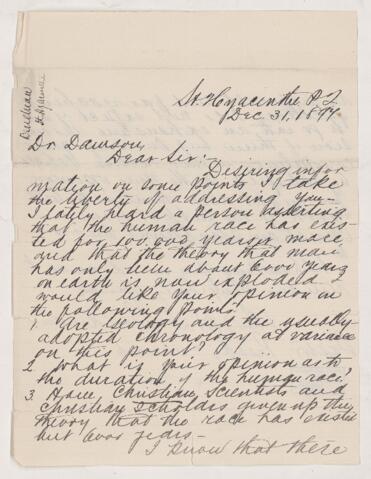 Dr. Dawson,
Dear Sir:-
St. Hyacinthe P.Q.
Dec 31, 1897
Desiring infor
mation on some points I take
the liberty of addressing you-
I lately heard a person asserting
that the human race has exis-
ted for 100,000 years or more
and that the theory that man
has only been about 6000 years
on earth is now exploded I
would like your opinion in
the following points.
1. Are Geology and the usually
adopted chronology at variance
on this point?
2 What is your opinion as to
the duration of the human race?
3 Have Christian Scientists and
Christian Scholars given up the
theory that the race has existed
but 6000 years-
I know that there